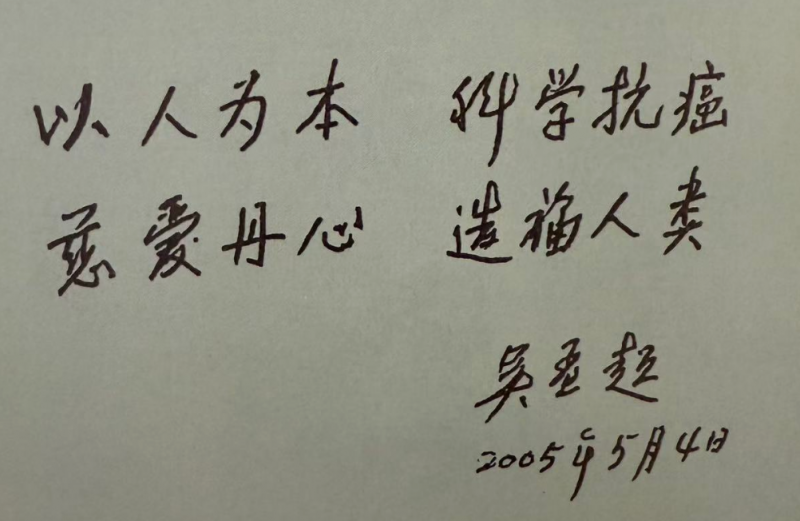 以人为本 科学抗癌
慈爱丹心 造福人类
吴孟超
2005年5月4日